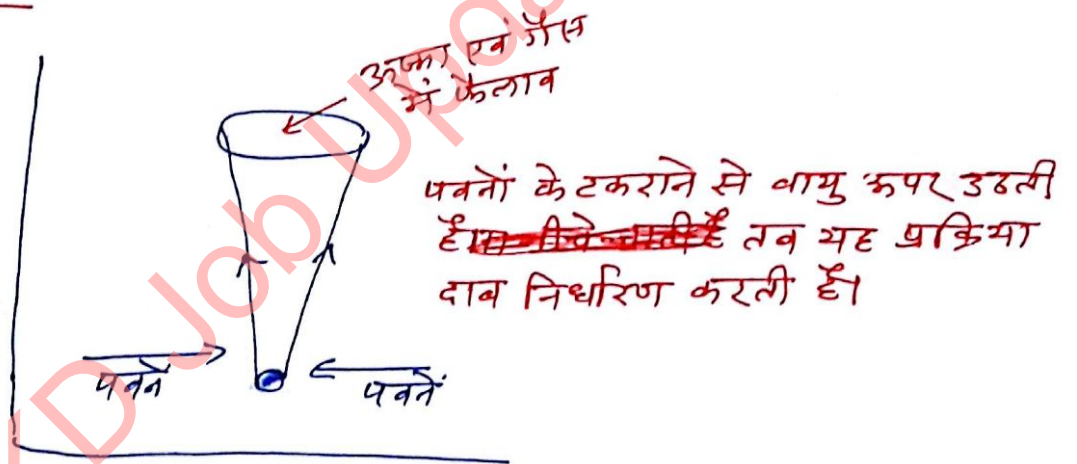 ऊष्मा एवं गैस
में फैलाव
पवनों के टकराने से वायु ऊपर उठती
है। तब यह प्रक्रिया
दाब निर्धारण करती है।
पवनें
पवनें
YD Job Upda